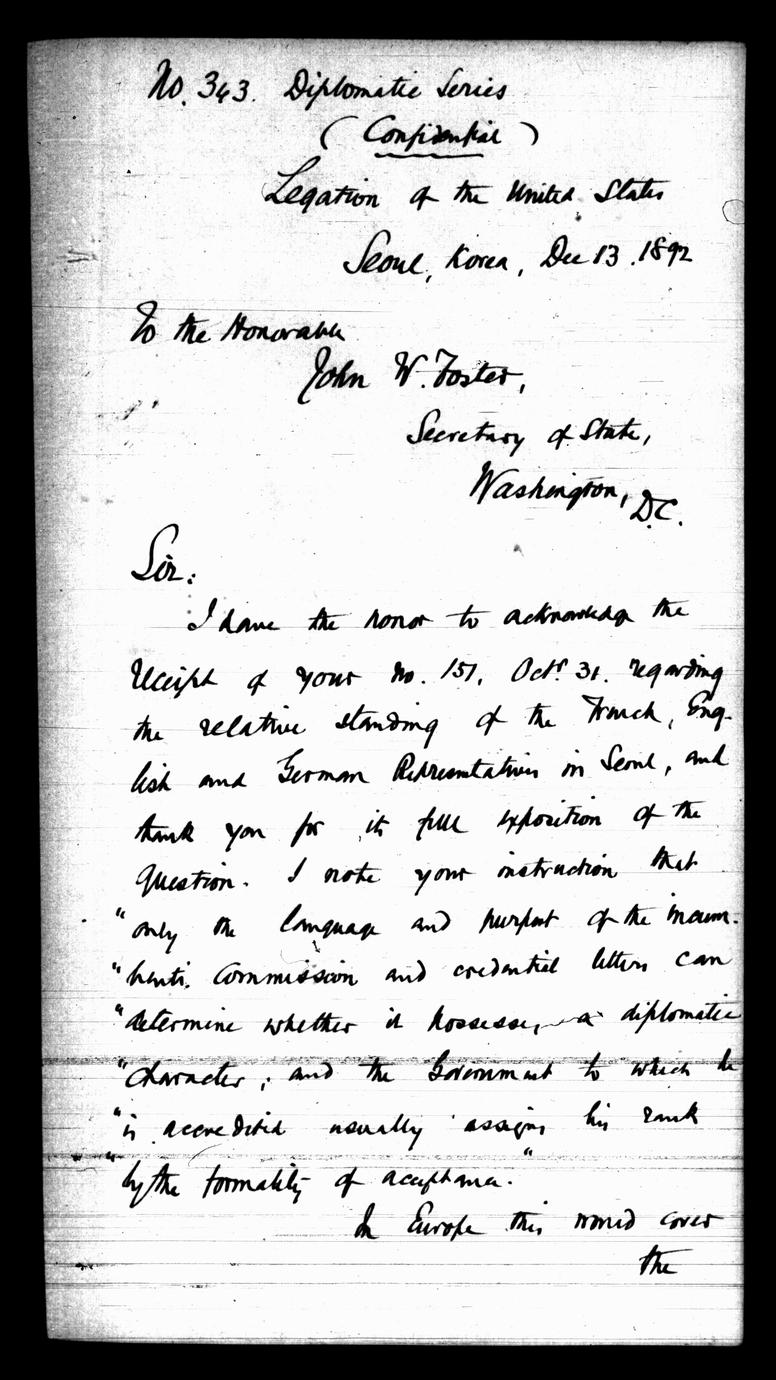 No. 343. Diplomatic Series
(Confidential)
Legation of the United States
Seoul, Korea, Dec 13. 1892
To the Honorable
John W. Foster,
Secretary of State,
Washington, D.C.
Sir:
I have the honor to acknowledge the
receipt of your No. 151, Octr. 31. regarding
the relative standing of the French, Eng-
lish and German Representatives in Seoul, and
thank you for its full exposition of the
question. I note your instruction that
"only the language and purport of the incum-
"bents commission and credential letters can
"determine whether it possesses a diplomatic
"character; and the Government to which he
"is accredited usually assigns his rank
"by the formality of acceptance."
In Europe this would cover
the